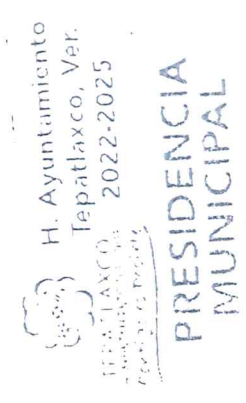 H. Ayuntamiento
Tepatlaxco, Ver.
2022-2025
TEPATLAXCO
PRESIDENCIA
MUNICIPAL